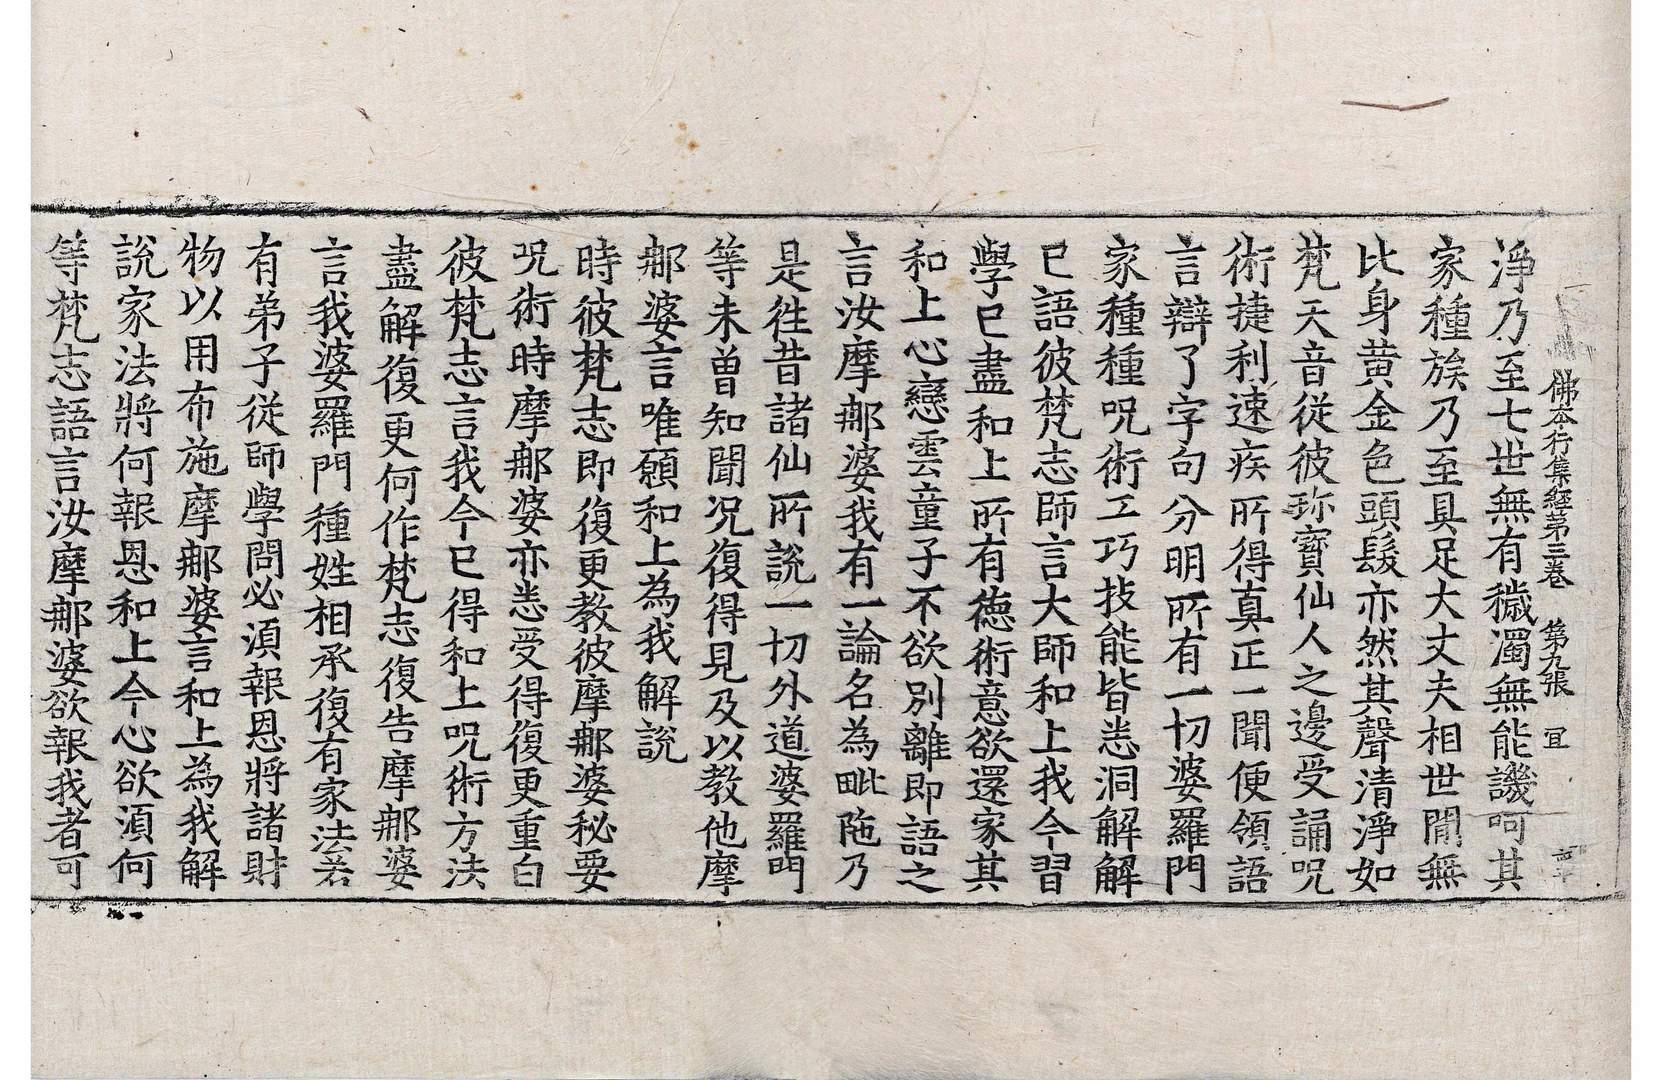 佛本行集經第三卷　第九張　宜
淨乃至七世無有穢濁無能譏呵其
家種族乃至具足大丈夫相世閒無
比身黄金色頭髮亦然其聲清淨如
梵天音從彼珎寶仙人之邊受誦呪
術捷利速疾所得真正一聞便領語
言辯了字句分明所有一切婆羅門
家種種呪術工巧技能皆悉洞解解
已語彼梵志師言大師和上我今習
學已盡和上所有德術意欲還家其
和上心戀雲童子不欲別離即語之
言汝摩那婆我有一論名為毗陁乃
是徃昔諸仙所說一切外道婆羅門
等未曾知聞况復得見及以教他摩
那婆言唯願和上為我解說
時彼梵志即復更教彼摩那婆秘要
呪術時摩那婆亦悉受得復更重白
彼梵志言我今已得和上呪術方法
盡解復更何作梵志復告摩那婆
言我婆羅門種姓相承復有家法若
有弟子從師學問必湏報恩將諸財
物以用布施摩那婆言和上為我解
說家法將何報恩和上今心欲湏何
等梵志語言汝摩那婆欲報我者可